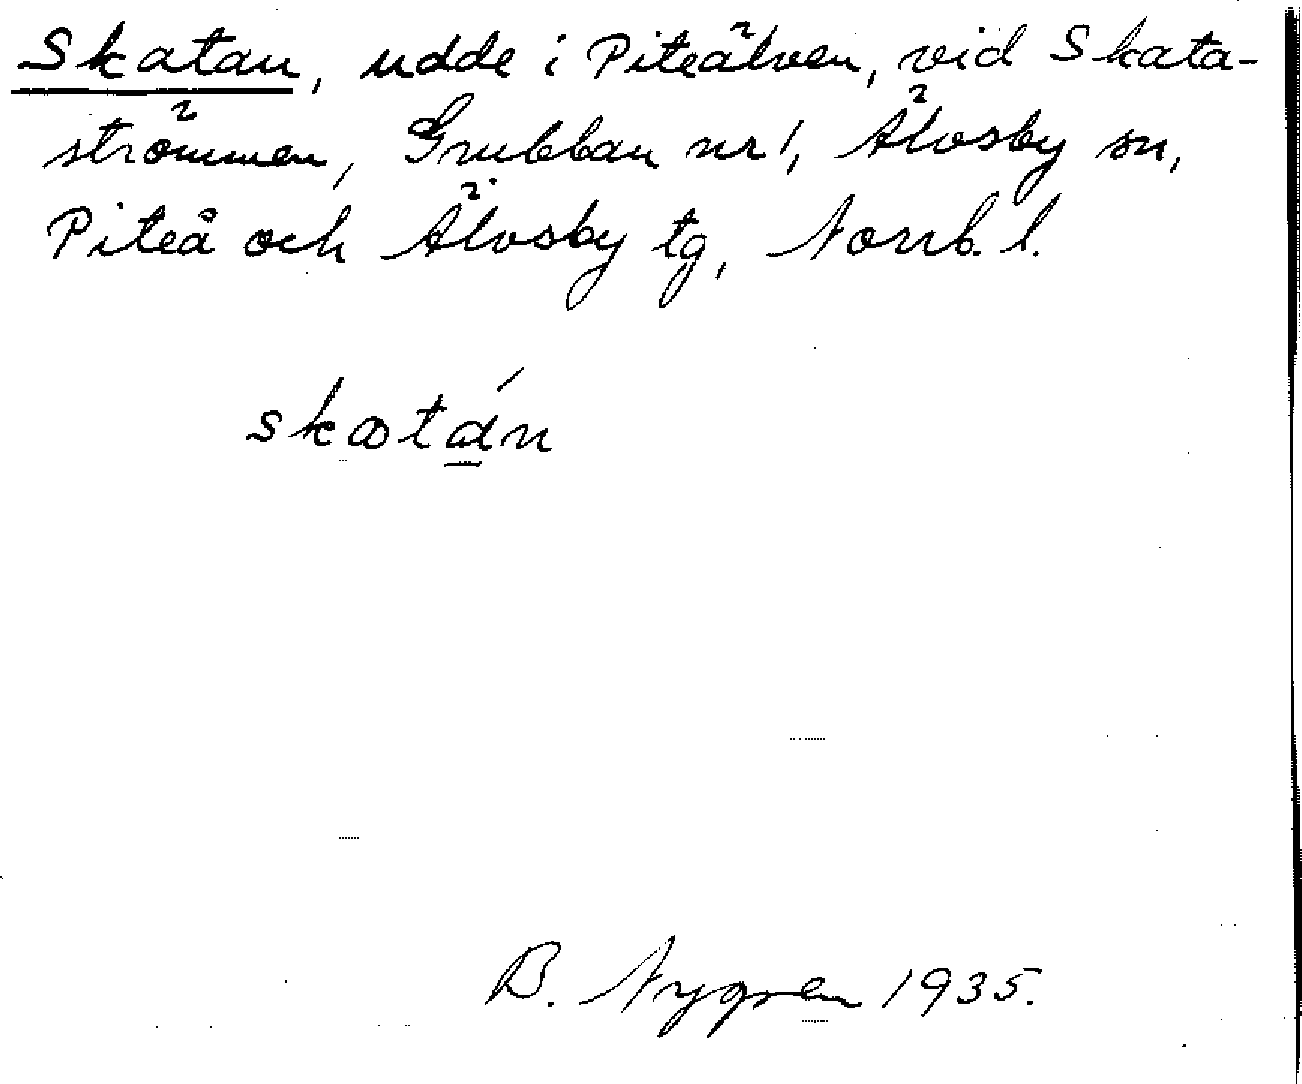 Skatan, udde i Piteälven, vid Skata-
strömmen, Grubban nr 1, Älvsby sn,
Piteå och Älvsby tg, Norrb. l.
skatán
B. Nygren 1935.